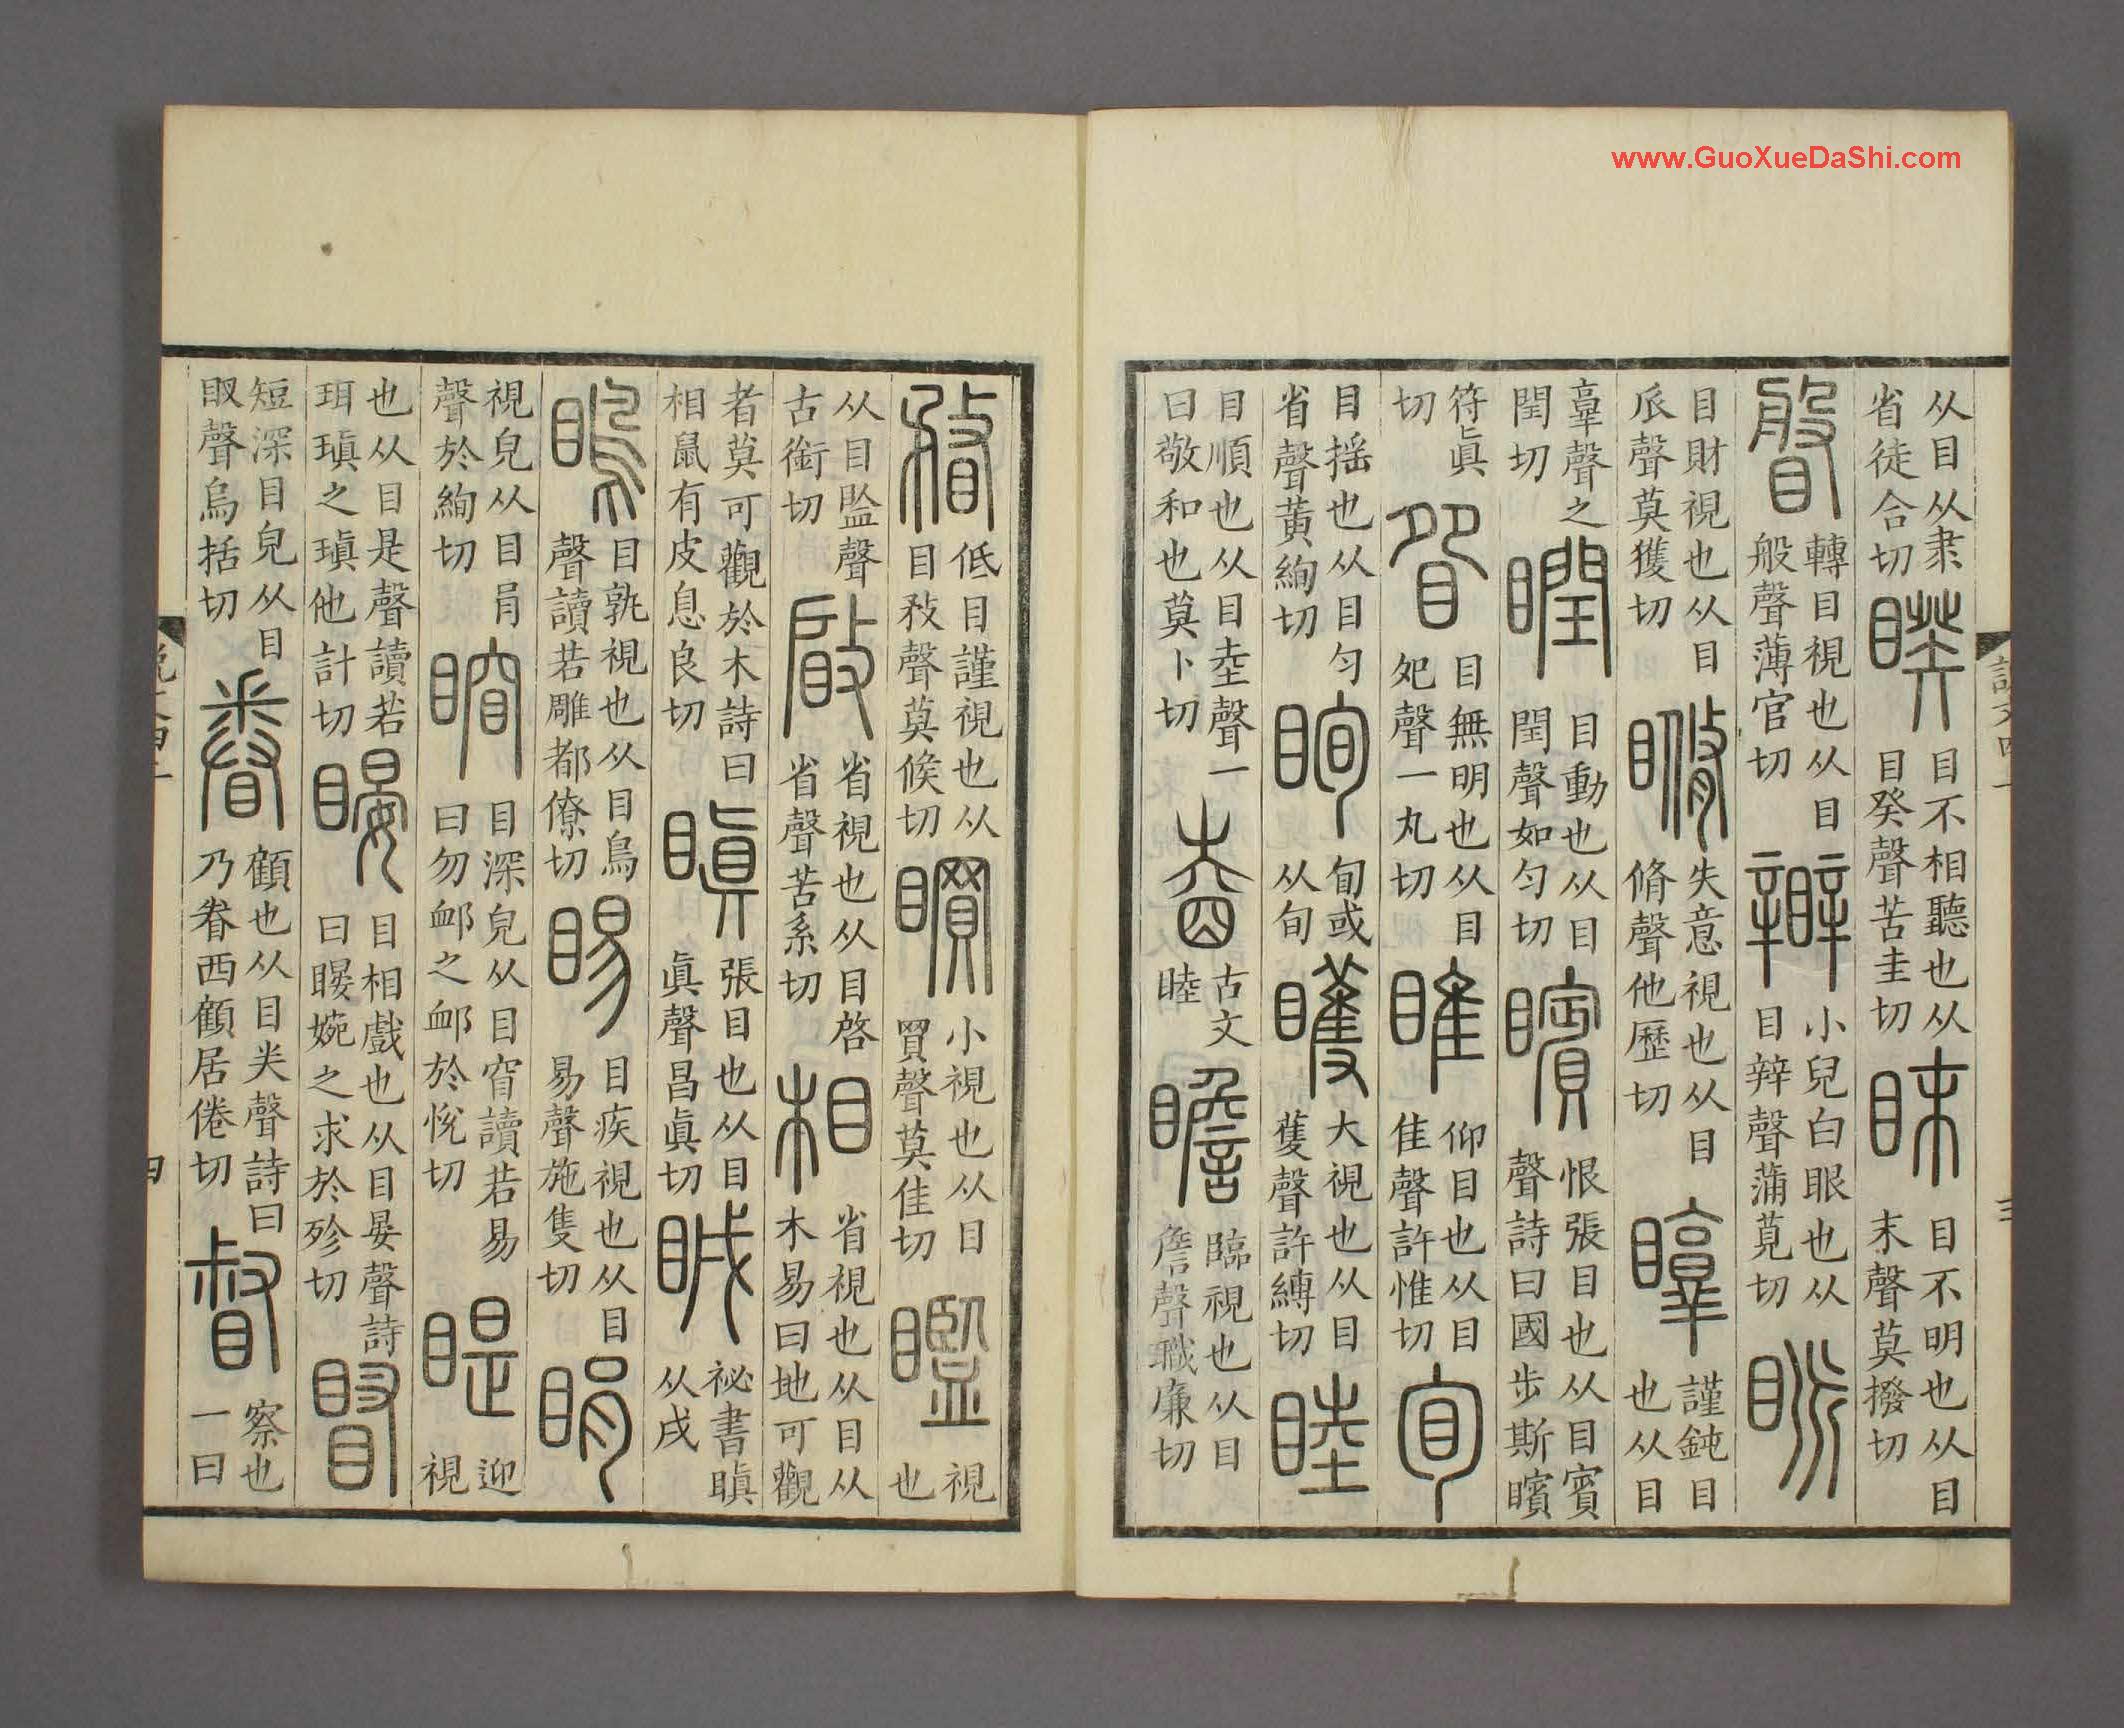 从目从隶省徒合切 睽 目不相聽也从目癸聲苦圭切 眜 目不明也从目末聲莫撥切
轉目視也从目般聲薄官切 小兒白眼也从目辡聲蒲莧切 眽
目財視也从目𠂢聲莫獲切 失意視也从目脩聲他歷切 謹鈍目也从目
𦎫聲之閏切 瞤 目動也从目閏聲如勻切 矉 恨張目也从目賓聲詩曰國步斯矉
符眞切 眢 目無明也从目夗聲一丸切 睢 仰目也从目隹聲許惟切 旬
目摇也从目勻省聲黃絢切 眴 旬或从旬 矆 大視也从目蒦聲許縛切 睦
目順也从目坴聲一曰敬和也莫卜切 古文睦 瞻 臨視也从目詹聲職廉切
瞀 低目謹視也从目敄聲莫候切 䁲 小視也从目買聲莫佳切 視也
从目監聲古銜切 䁈 省視也从目啓省聲苦系切 相 省視也从目从木易曰地可觀
者莫可觀於木詩曰相鼠有皮息良切 瞋 張目也从目眞聲昌眞切 祕書瞋从戌
瞗 目孰視也从目鳥聲讀若雕都僚切 睗 目疾視也从目易聲施隻切 睊
視皃从目肙聲於絢切 目深皃从目窅讀若易曰勿卹之卹於悅切 睼 迎視
也从目是聲讀若珥瑱之瑱他計切 䁙 目相戲也从目晏聲詩曰䁙婉之求於殄切
短深目皃从目𥃳聲烏括切 眷 顧也从目𢍏聲詩曰乃眷西顧居倦切 督 察也一曰
www.GuoXueDaShi.com